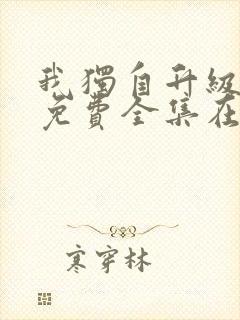 我獨自升級
免費全集在
寒穿林